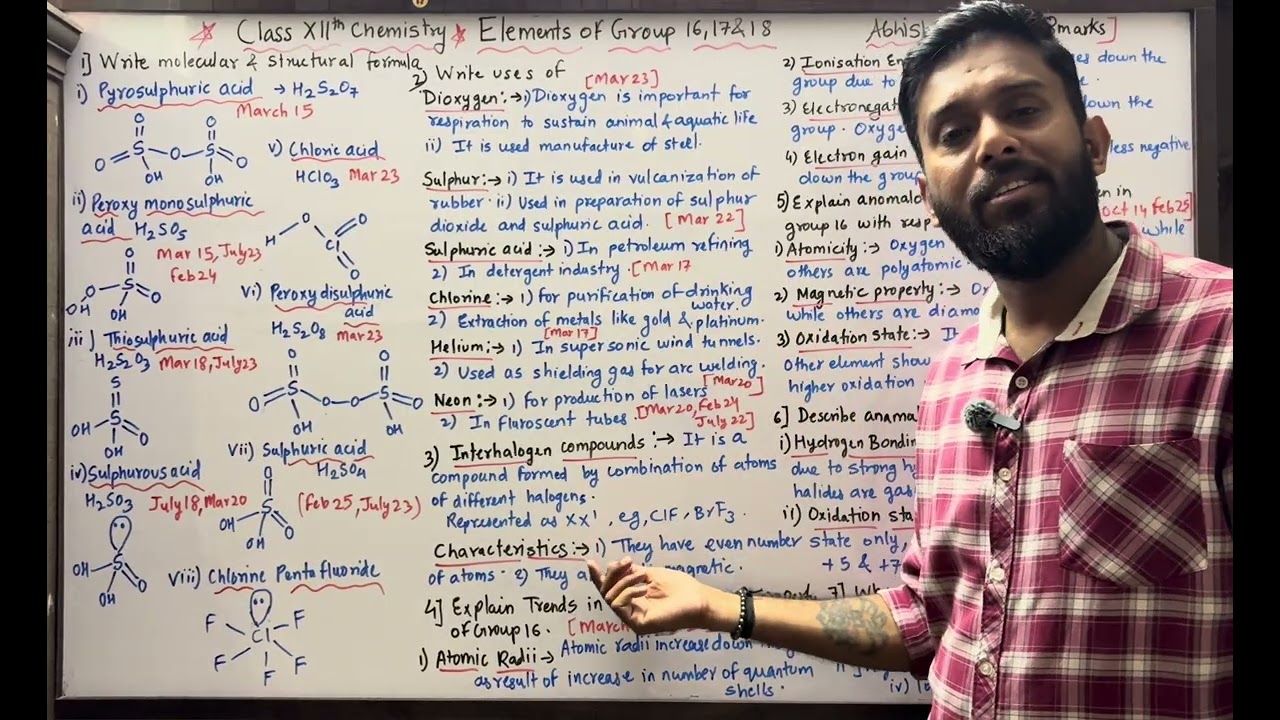 Class XIIth Chemistry Elements of Group 16,17&18 Abhish marks]
1] Write molecular & structural formula
i) Pyrosulphuric acid → H2S2O7
March 15
O O
O S O S O
OH OH
ii) Peroxy monosulphuric
acid H2SO5
Mar 15, July23
Feb24
O
O S O
OH OH
iii) Thiosulphuric acid
H2S2O3 Mar18, July23
S
OH S O
OH
iv) Sulphurous acid
H2SO3 July18, Mar20
OH S O
OH
v) Chloric acid
HClO3 Mar 23
O O
H Cl
O
vi) Peroxydisulphuric
acid
H2S2O8 Mar23
O O
O S O O S O
OH OH
vii) Sulphuric acid
H2SO4
(Feb25, July23)
O
OH S O
OH
viii) Chlorine Pentafluoride
F Cl F
F F F
2) Write uses of [Mar23]
Dioxygen:→ i) Dioxygen is important for
respiration to sustain animal & aquatic life
ii) It is used manufacture of steel.
Sulphur:→ i) It is used in vulcanization of
rubber. ii) Used in preparation of sulphur
dioxide and sulphuric acid. [Mar 22]
Sulphuric acid:→ 1) In petroleum refining
2) In detergent industry. [Mar17
Chlorine:→ 1) for purification of drinking
water.
2) Extraction of metals like gold & platinum.
[Mar17]
Helium:→ 1) In supersonic wind tunnels.
2) Used as shielding gas for arc welding.
[Mar20]
Neon:→ 1) for production of lasers
2) In fluroscent tubes. [Mar20, Feb24
July22]
3) Interhalogen compounds:→ It is a
compound formed by combination of atoms
of different halogens.
Represented as XX', eg, ClF, BrF3.
Characteristics:→ 1) They have even number
of atoms. 2) They magnetic.
4] Explain Trends in
of Group 16. [March
1) Atomic Radii → Atomic radii increase down
as result of increase in number of quantum
shells.
2) Ionisation En down the
group due to
3) Electronegat down the
group. Oxyge
4) Electron gain less negative
down the group
5) Explain anomalo
group 16 with resp Oct 14 Feb25]
i) Atomicity:→ Oxygen while
others are polyatomic.
2) Magnetic property:→
while others are diama
3) Oxidation state:→ It
Other element show
higher oxidation
6] Describe anamal
i) Hydrogen Bondin
due to strong hy
halides are gas
ii) Oxidation sta
state only,
+5 & +7
7]
iv)